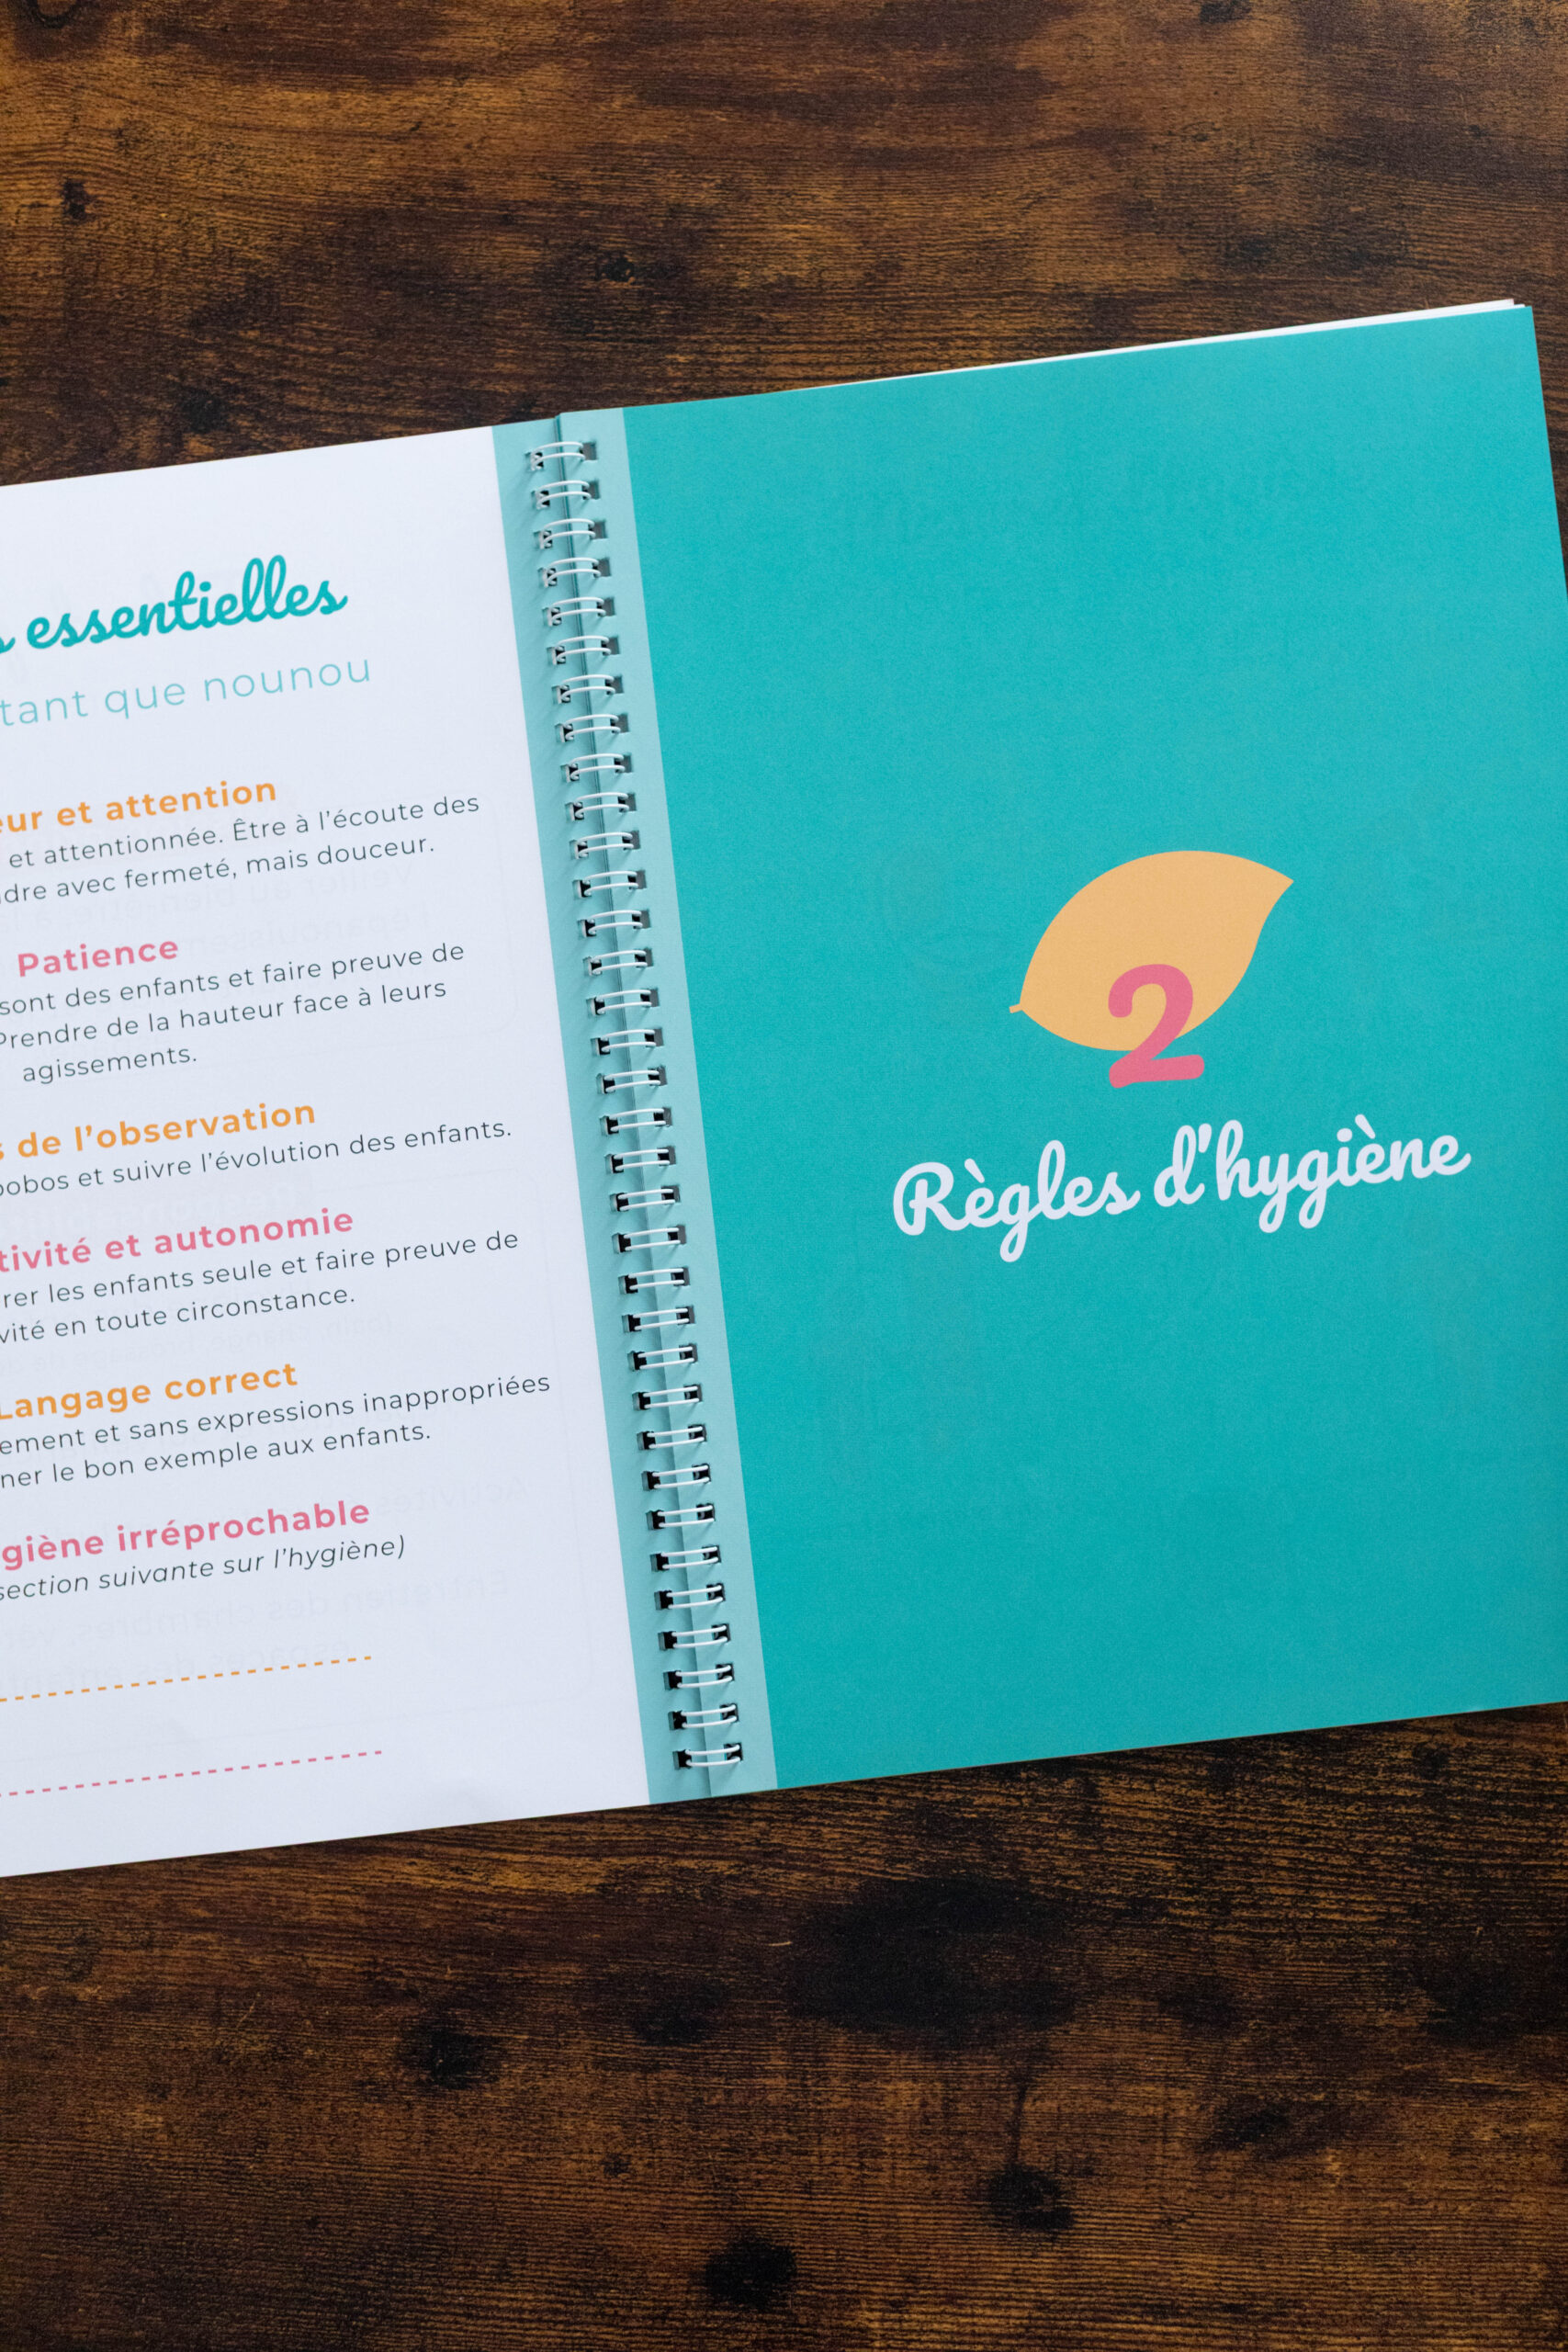 essentielles
tant que nounou
et attention
et attentionnée. Être à l'écoute des
avec fermeté, mais douceur.
Patience
sont des enfants et faire preuve de
Prendre de la hauteur face à leurs
agissements.
de l'observation
bobos et suivre l'évolution des enfants.
et autonomie
les enfants seule et faire preuve de
en toute circonstance.
Langage correct
et sans expressions inappropriées
le bon exemple aux enfants.
irréprochable
section suivante sur l'hygiène)
2
Règles d'hygiène